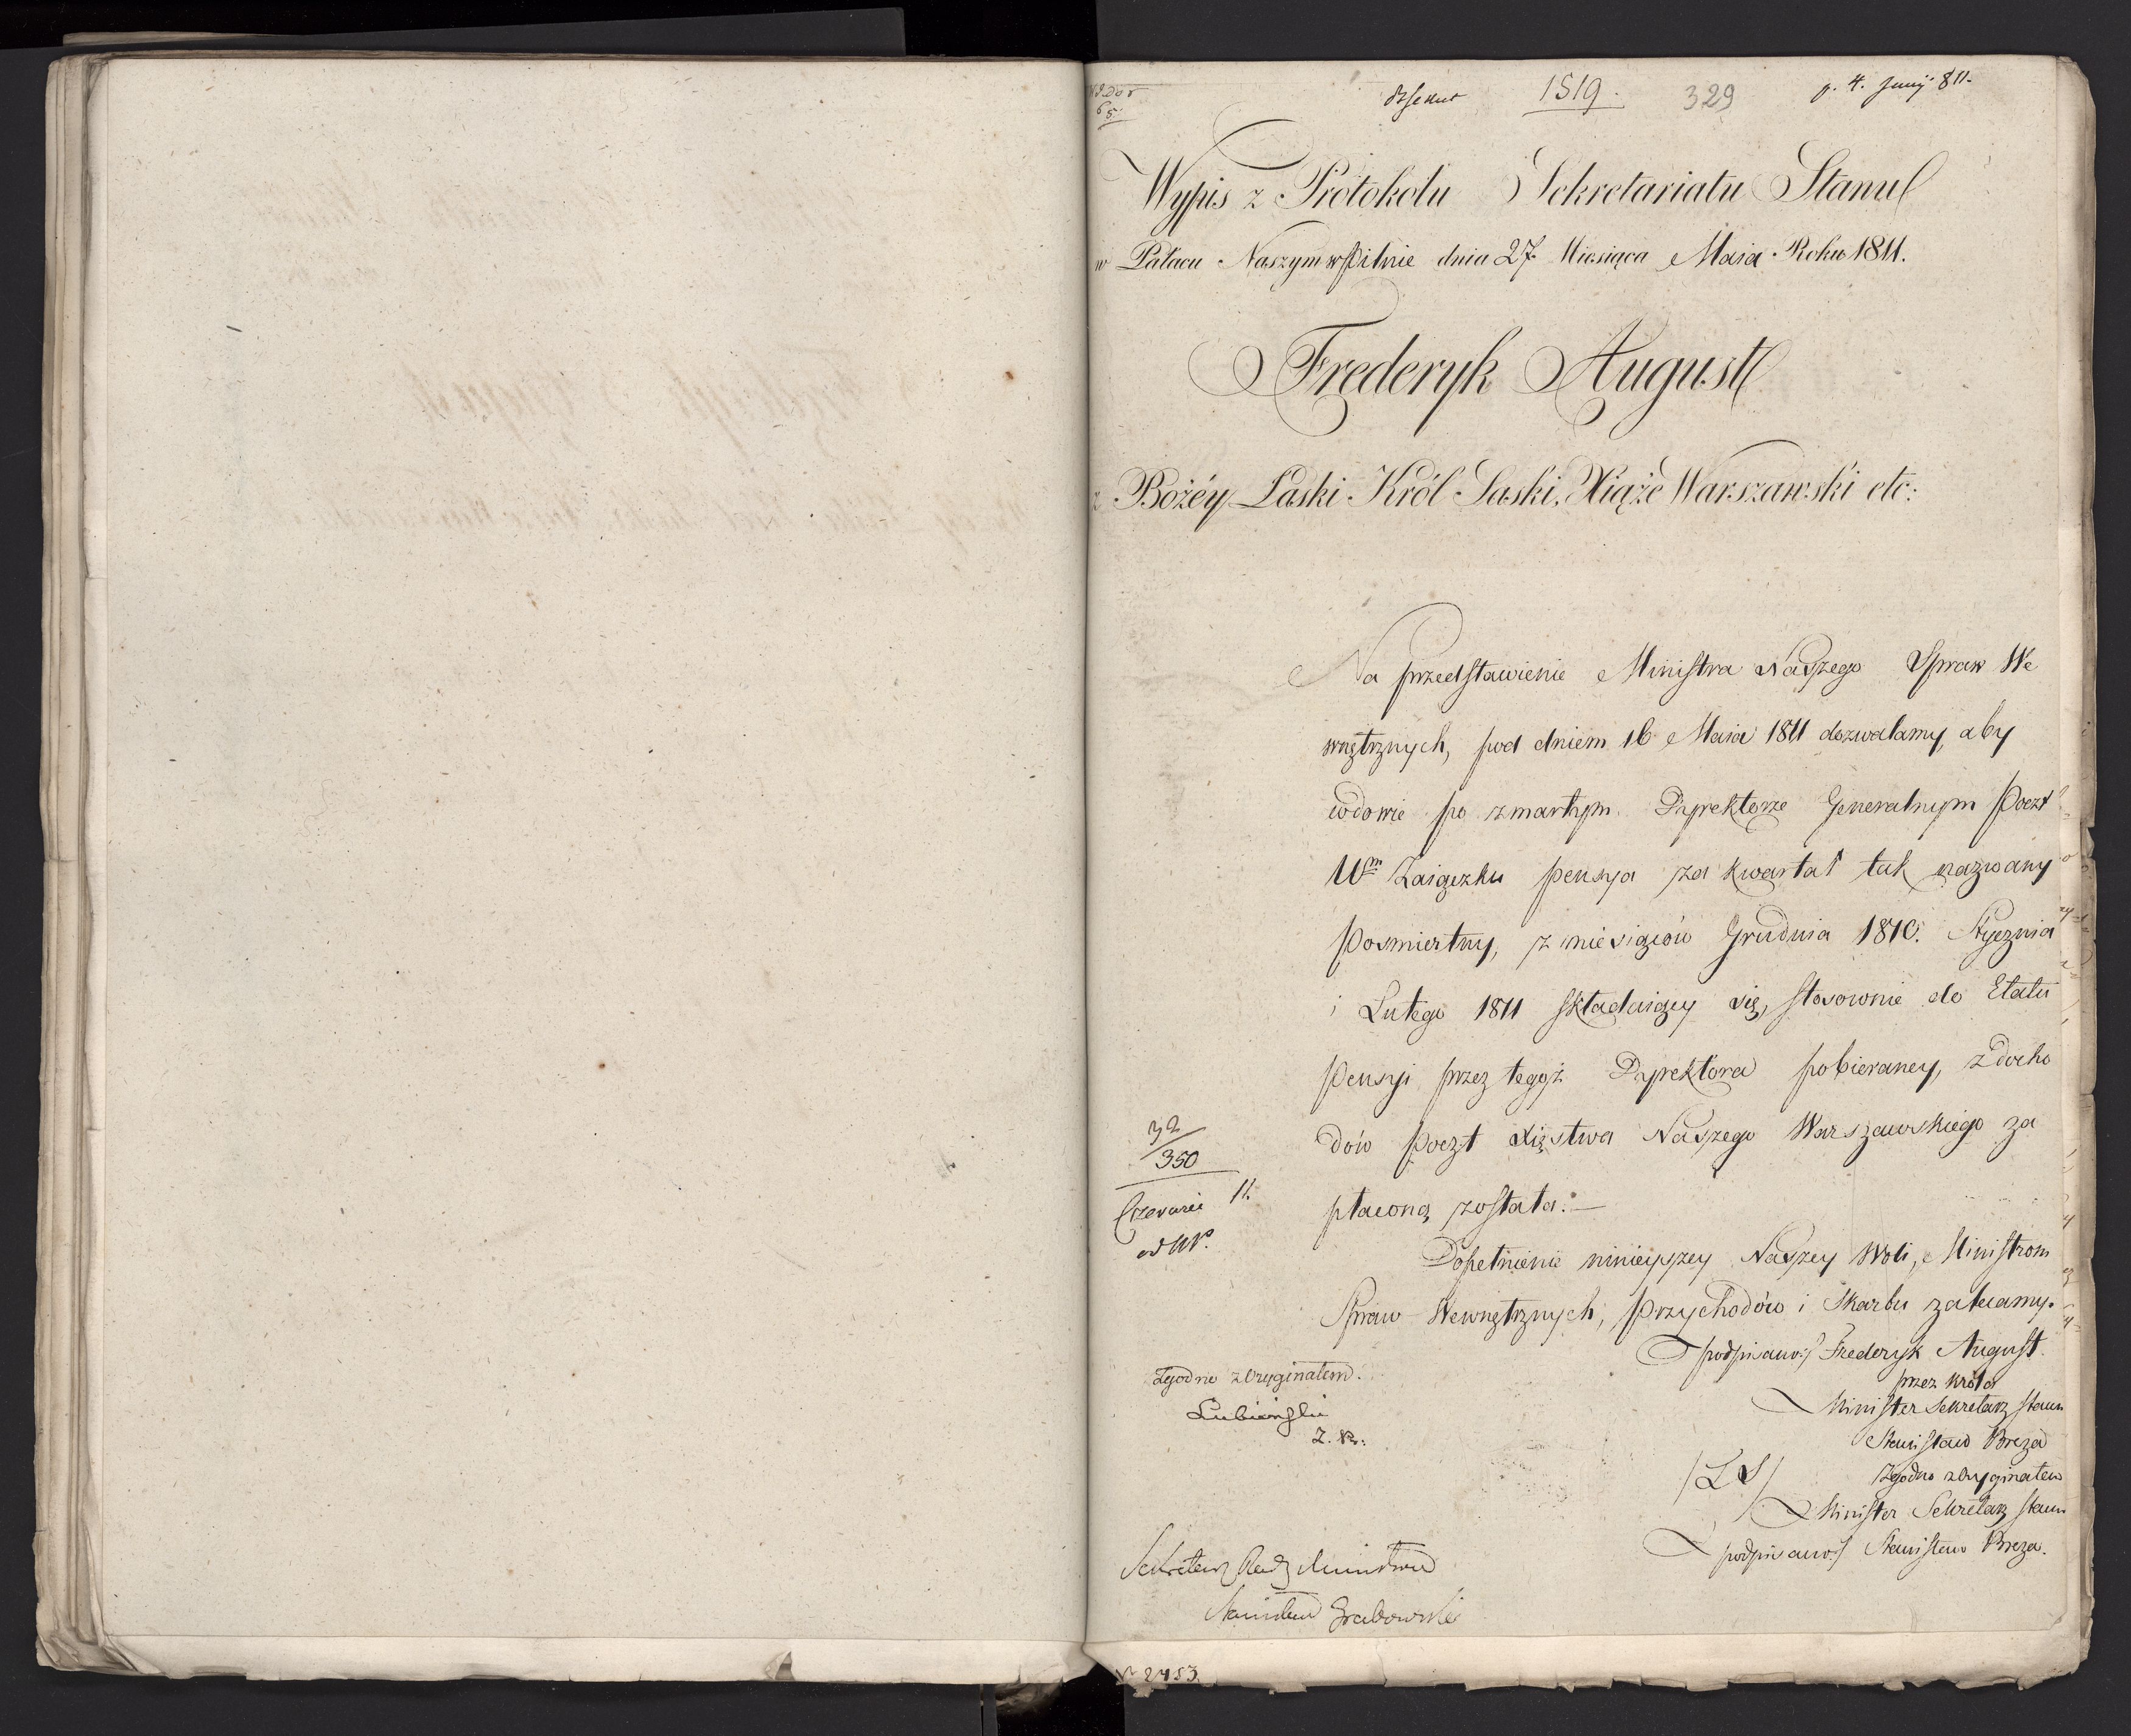 1519. 329 p. 4. Junij 811.
65.
Wypis z Protokołu Sekretariatu Stanu
w Pałacu Naszym w Pilnie dnia 27. Miesiąca Maia Roku 1811.
Frederyk August
z Bożéy Łaski Król Saski, Xiąże Warszawski etc:
Na przedstawienie Ministra Naszego Spraw We
wnętrznych, pod dniem 16 Maia 1811 dozwalamy, aby
wdowie po zmarłym Dyrektorze Generalnym Poczt
Ur Zaiączku pensya za kwartał tak nazwany
Posmiertny, z miesięców Grudnia 1810. Stycznia
i Lutego 1811 składaiący się, stosownie do Etatu
Pensyi przez tegoż Dyrektora pobieraney, z docho
dów Poczt Xięstwa Naszego Warszawskiego za
płaconą została.—
32/350
Czerwiec 11.
Dopełnienie ninieyszey Naszey Woli, Ministrom
Spraw Wewnętrznych, Przychodów i Skarbu zalecamy.
podpisano:/ Frederyk August.
przez Króla
Minister Sekretarz Stanu
Stanisław Breza
Zgodno z Oryginałem.
Lubieński
/LS/ Zgodno z Oryginałem
Minister Sekretarz Stanu
podpisano:/ Stanisław Breza.
Sekretarz Rady Ministrów
Stanisław Grabowski
N 2453.